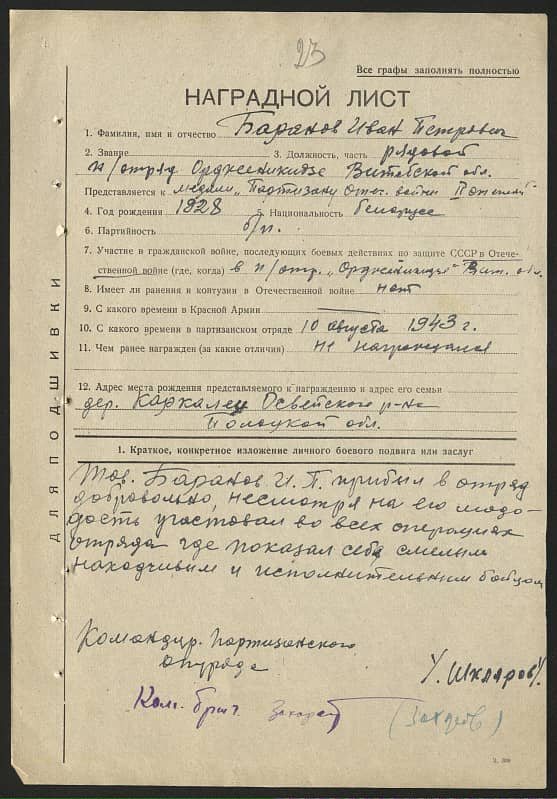 23
Все графы заполнять полностью
НАГРАДНОЙ ЛИСТ
1. Фамилия, имя и отчество Баранов Иван Петрович
2. Звание 3. Должность, часть рядовой
п/отряд Орджоникидзе Витебской обл.
Представляется к медали „Партизану Отеч. войны II степ."
4. Год рождения 1928 5. Национальность белорусс
6. Партийность б/п.
7. Участие в гражданской войне, последующих боевых действиях по защите СССР в Отече-
ственной войне (где, когда) в п/отр. „Орджоникидзе" Вит. обл.
8. Имеет ли ранения и контузии в Отечественной войне нет
9. С какого времени в Красной Армии
10. С какого времени в партизанском отряде 10 августа 1943 г.
11. Чем ранее награжден (за какие отличия) не награждался
12. Адрес места рождения представляемого к награждению и адрес его семьи
дер. Освейского р-на
Полоцкой обл.
1. Краткое, конкретное изложение личного боевого подвига или заслуг
Тов. Баранов И. П. прибыл в отряд
добровольно, несмотря на его моло-
дость участвовал во всех операциях
отряда где показал себя смелым
находчивым и исполнительным бойцом
Командир. партизанского
отряда
У. Шкляров У.
Ком. бриг. Захаров
(Захаров)
ДЛЯ ПОДШИВКИ